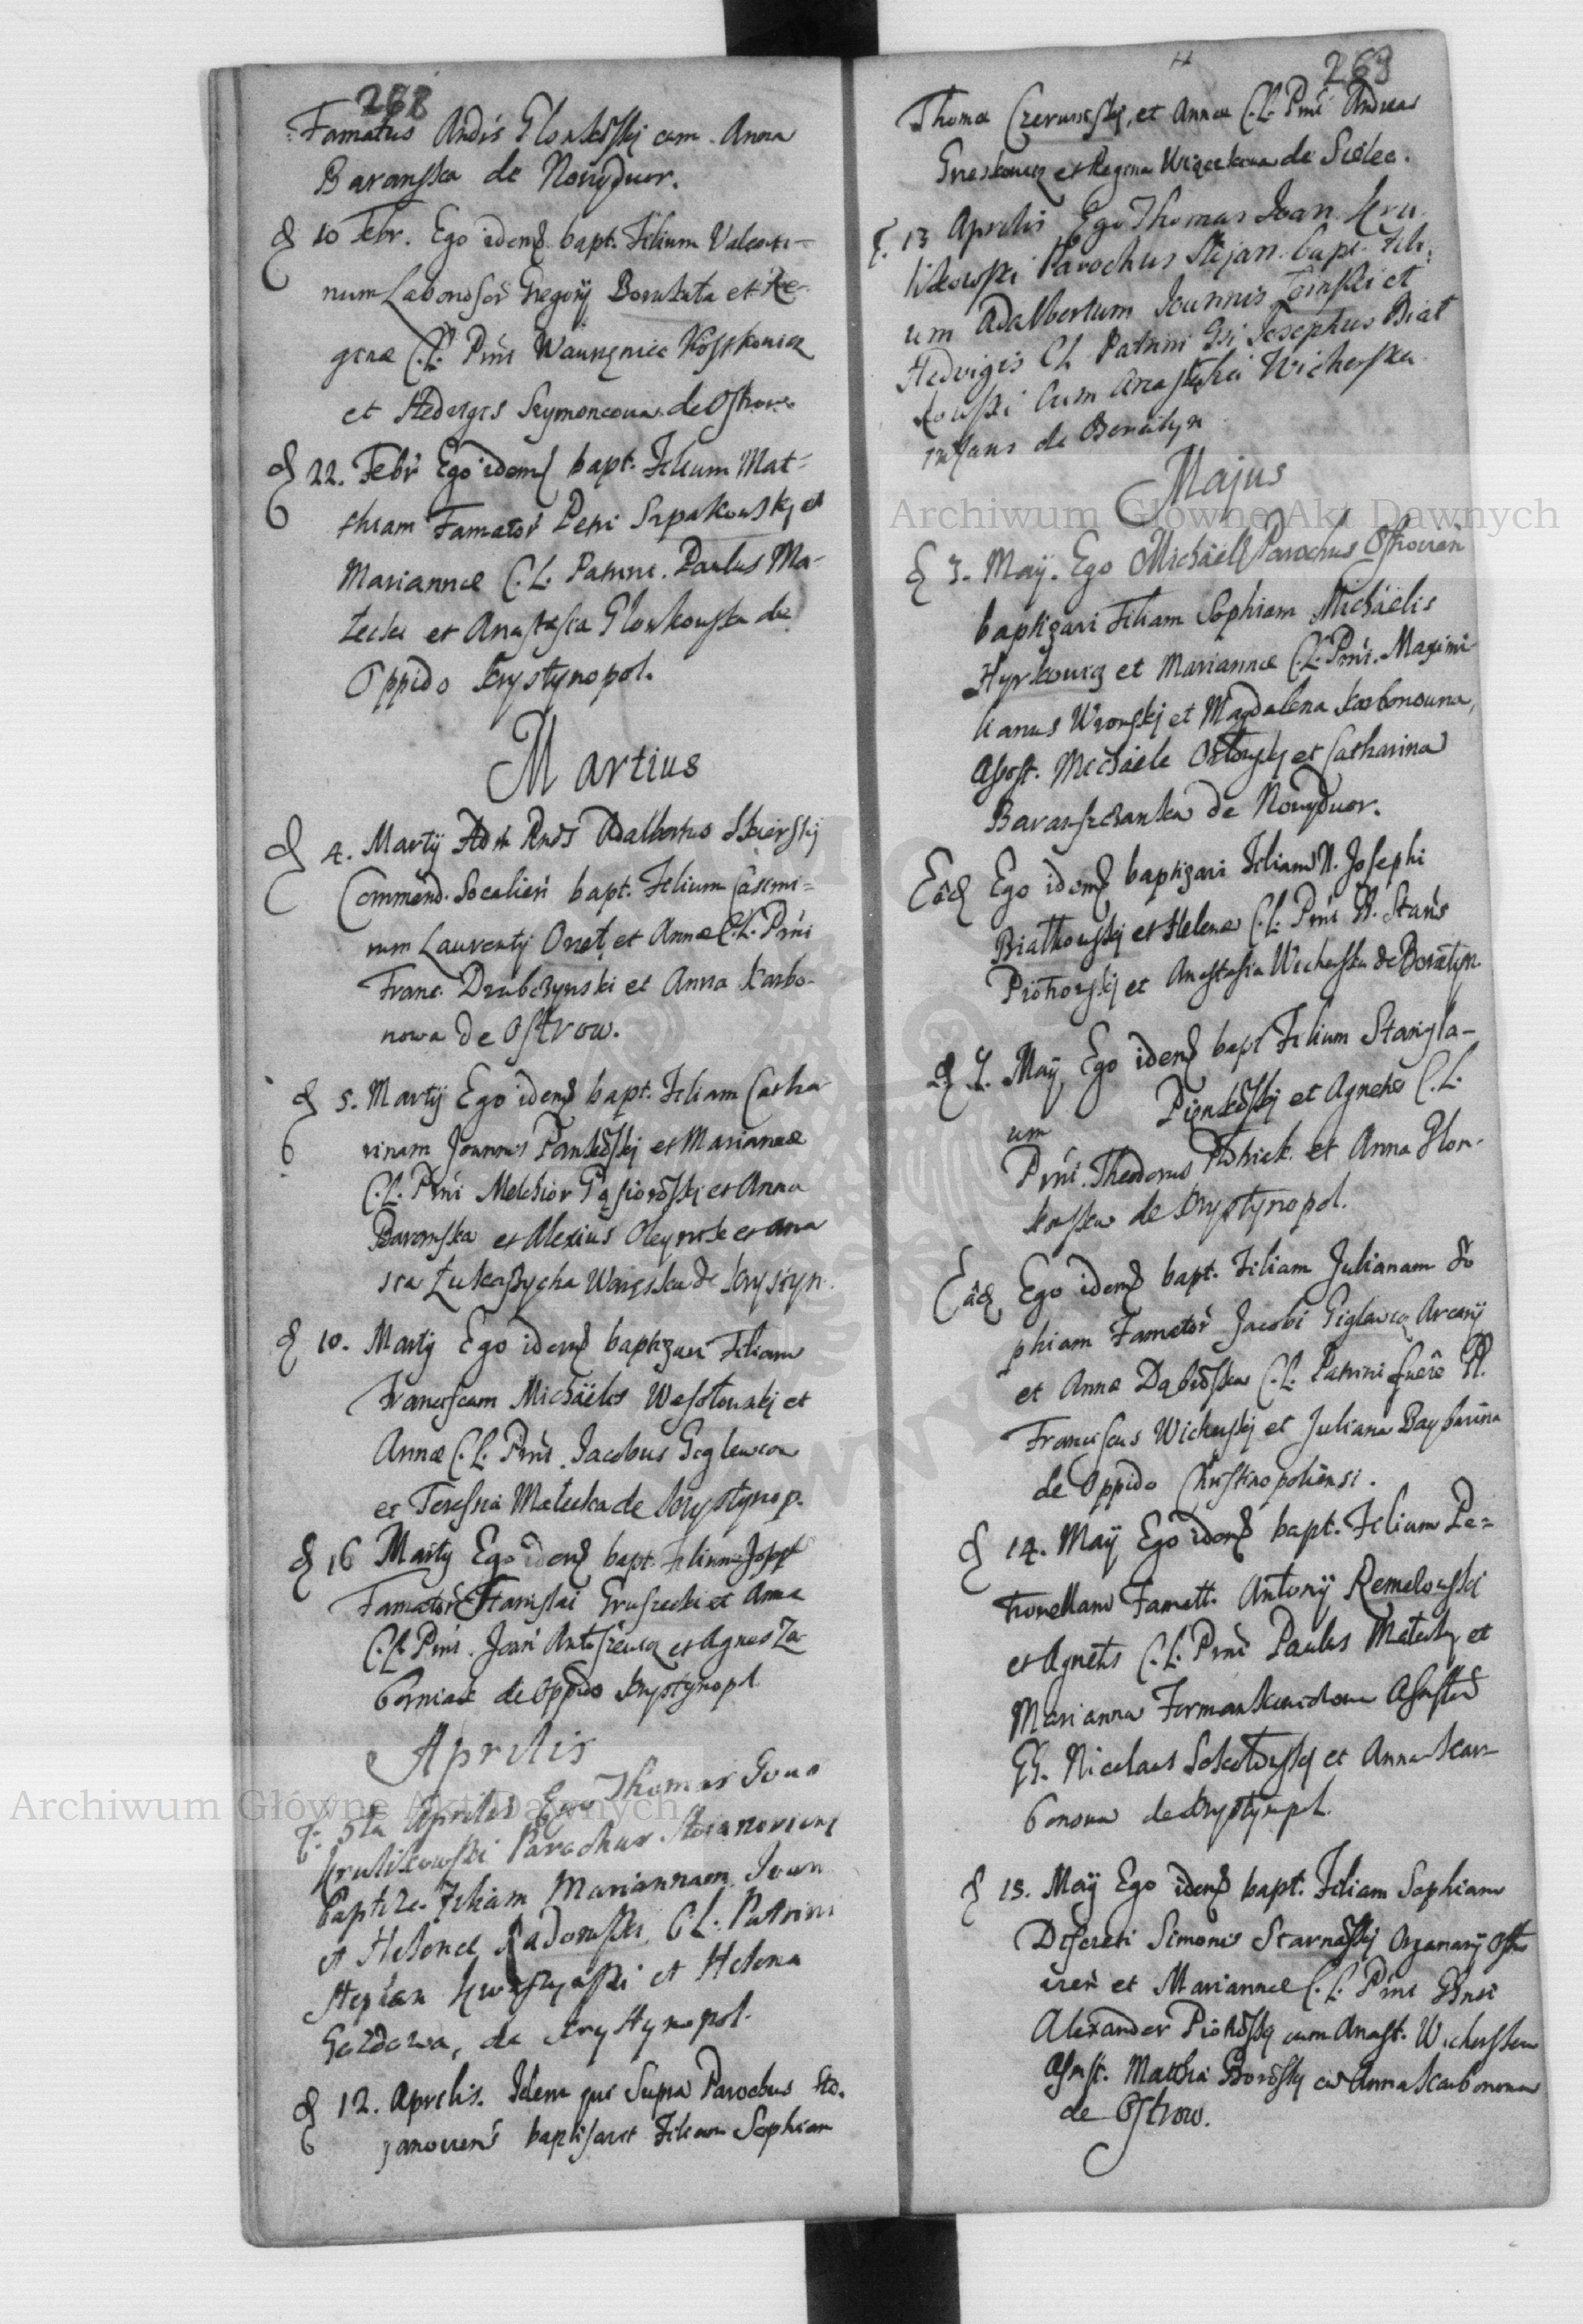 268
Famatus Andis Glonkoski cum Anna
Baranska de Nowydwor.
D 10 Febr. Ego idem bapt. Filium Valenti-
num Laboriosor Gregorij et Re-
ginae C.L. Prni Kosskowicz
et Hedvigis Szymoncowa de Ostrow
D 22. Febr Ego idem bapt. Filium Mat-
thiam Famator Petri Szpakowskj et
Mariannae C.L. Patrini. Paulus Ma-
lecki et Anastasia Glonkowska de
Oppido Krystynopol.
Martius
D 4. Martij Adm Rnds Adalbertus Skierskj
Commend. Socalien bapt. Filium Casimi=
rum Laurentij Onet et Annae C.L. Prni
Franc. Drabczynski et Anna Karbo-
nowa de Ostrow.
D 5. Martij Ego idem bapt. Filiam Catha
rinam Joannis Pankoskj et Mariannae
C.L. Prni Melchior Gąsioroskj et Anna
Baronska et Alexius Oleynik et ana
sta Łukaszycha de Krystyn.
D 10. Martij Ego idem baptizavi Filiam
Franciscam Michäelis Wesołowskj et
Annae C.L. Prni. Jacobus Giglewcz
et Teressia Małecka de Krystynop.
D 16 Martij Ego idem bapt. Filium Joseph
Famator Stanislai Gruszecki et Anna
C.L. Prni. Joan et Agnes Za-
borniak de Oppido Krystynopl
Aprilis
D. 5ta Aprilis Ego Thomas Joan
Krulikowski Parochus Stoianoviens
Baptiza. Filiam Mariannam Joan
et Helenae Radomski C.L. Patrini
Stephan et Helena
Gozdowa, de Krystynopol.
D 12. Aprilis. Idem qui Supra Parochus Sto-
janovien baptisavit Filiam Sophiam
269
Thomae Czerwinskj, et Annae C.L. Prni Andreas
et Regina de Sielec.
D. 13 Aprilis Ego Thomas Joan Kru
likowski Parochus Stojan. bapt. Fili
um Adalbertum Joannis et
Hedvigis CL Patrini Gsi Josephus Biał
kowski Cum Anastasia Wicherska
infans de Boratyn
Majus
D 3. Maij. Ego Michäel Parochus Ostrovien
baptizavi Filiam Sophiam Michäelis
Hyrkowicz et Mariannae C.L. Prni. Maximi-
lianus Wronskj et Magdalena Karbonowna,
Assist. Michäele et Catharina
Baraszczanka de Nowydwor.
Eâd Ego idem baptizavi Filiam N. Josephi
Białkowskj et Helenae C.L. Prni N. Stans
Piotrowskj et Anastasia Wicherska de Boratyn.
D 7. Maij Ego idem bapt Filium Stanisla-
um Pienkoskj et Agnetis C.L.
Prni. Theodorus et Anna Glon-
koska de Krystynopol.
Eâd Ego idem bapt. Filiam Julianam So
phiam Famator Jacobi Giglewcz Arcarij
et Annae Dąbroska C.L. Patrini fuere N.
Franciscus Wicherskj et Juliana
de Oppido Christinopoliensi.
D 14. Maij Ego idem bapt. Filiam Pe=
tronellam Famatt. Antonij Remelowski
et Agnetis C.L. Prni Paulus Małecky et
Marianna Assisten
GG. Nicolaus Sokołowskj et Anna Kar-
bonowa de Krystynopl.
D 15. Maij Ego idem bapt. Filiam Sophiam
Discreti Simonis Starnaskj Organarij Ostro
vien et Mariannae C.L. Prni Gnsi
Alexander Piotroskj cum Anast. Wicherska
Assist. Mathia Boroskj cu Anna Karbonowa
de Ostrow.
Archiwum Główne Akt Dawnych
Archiwum Główne Akt Dawnych